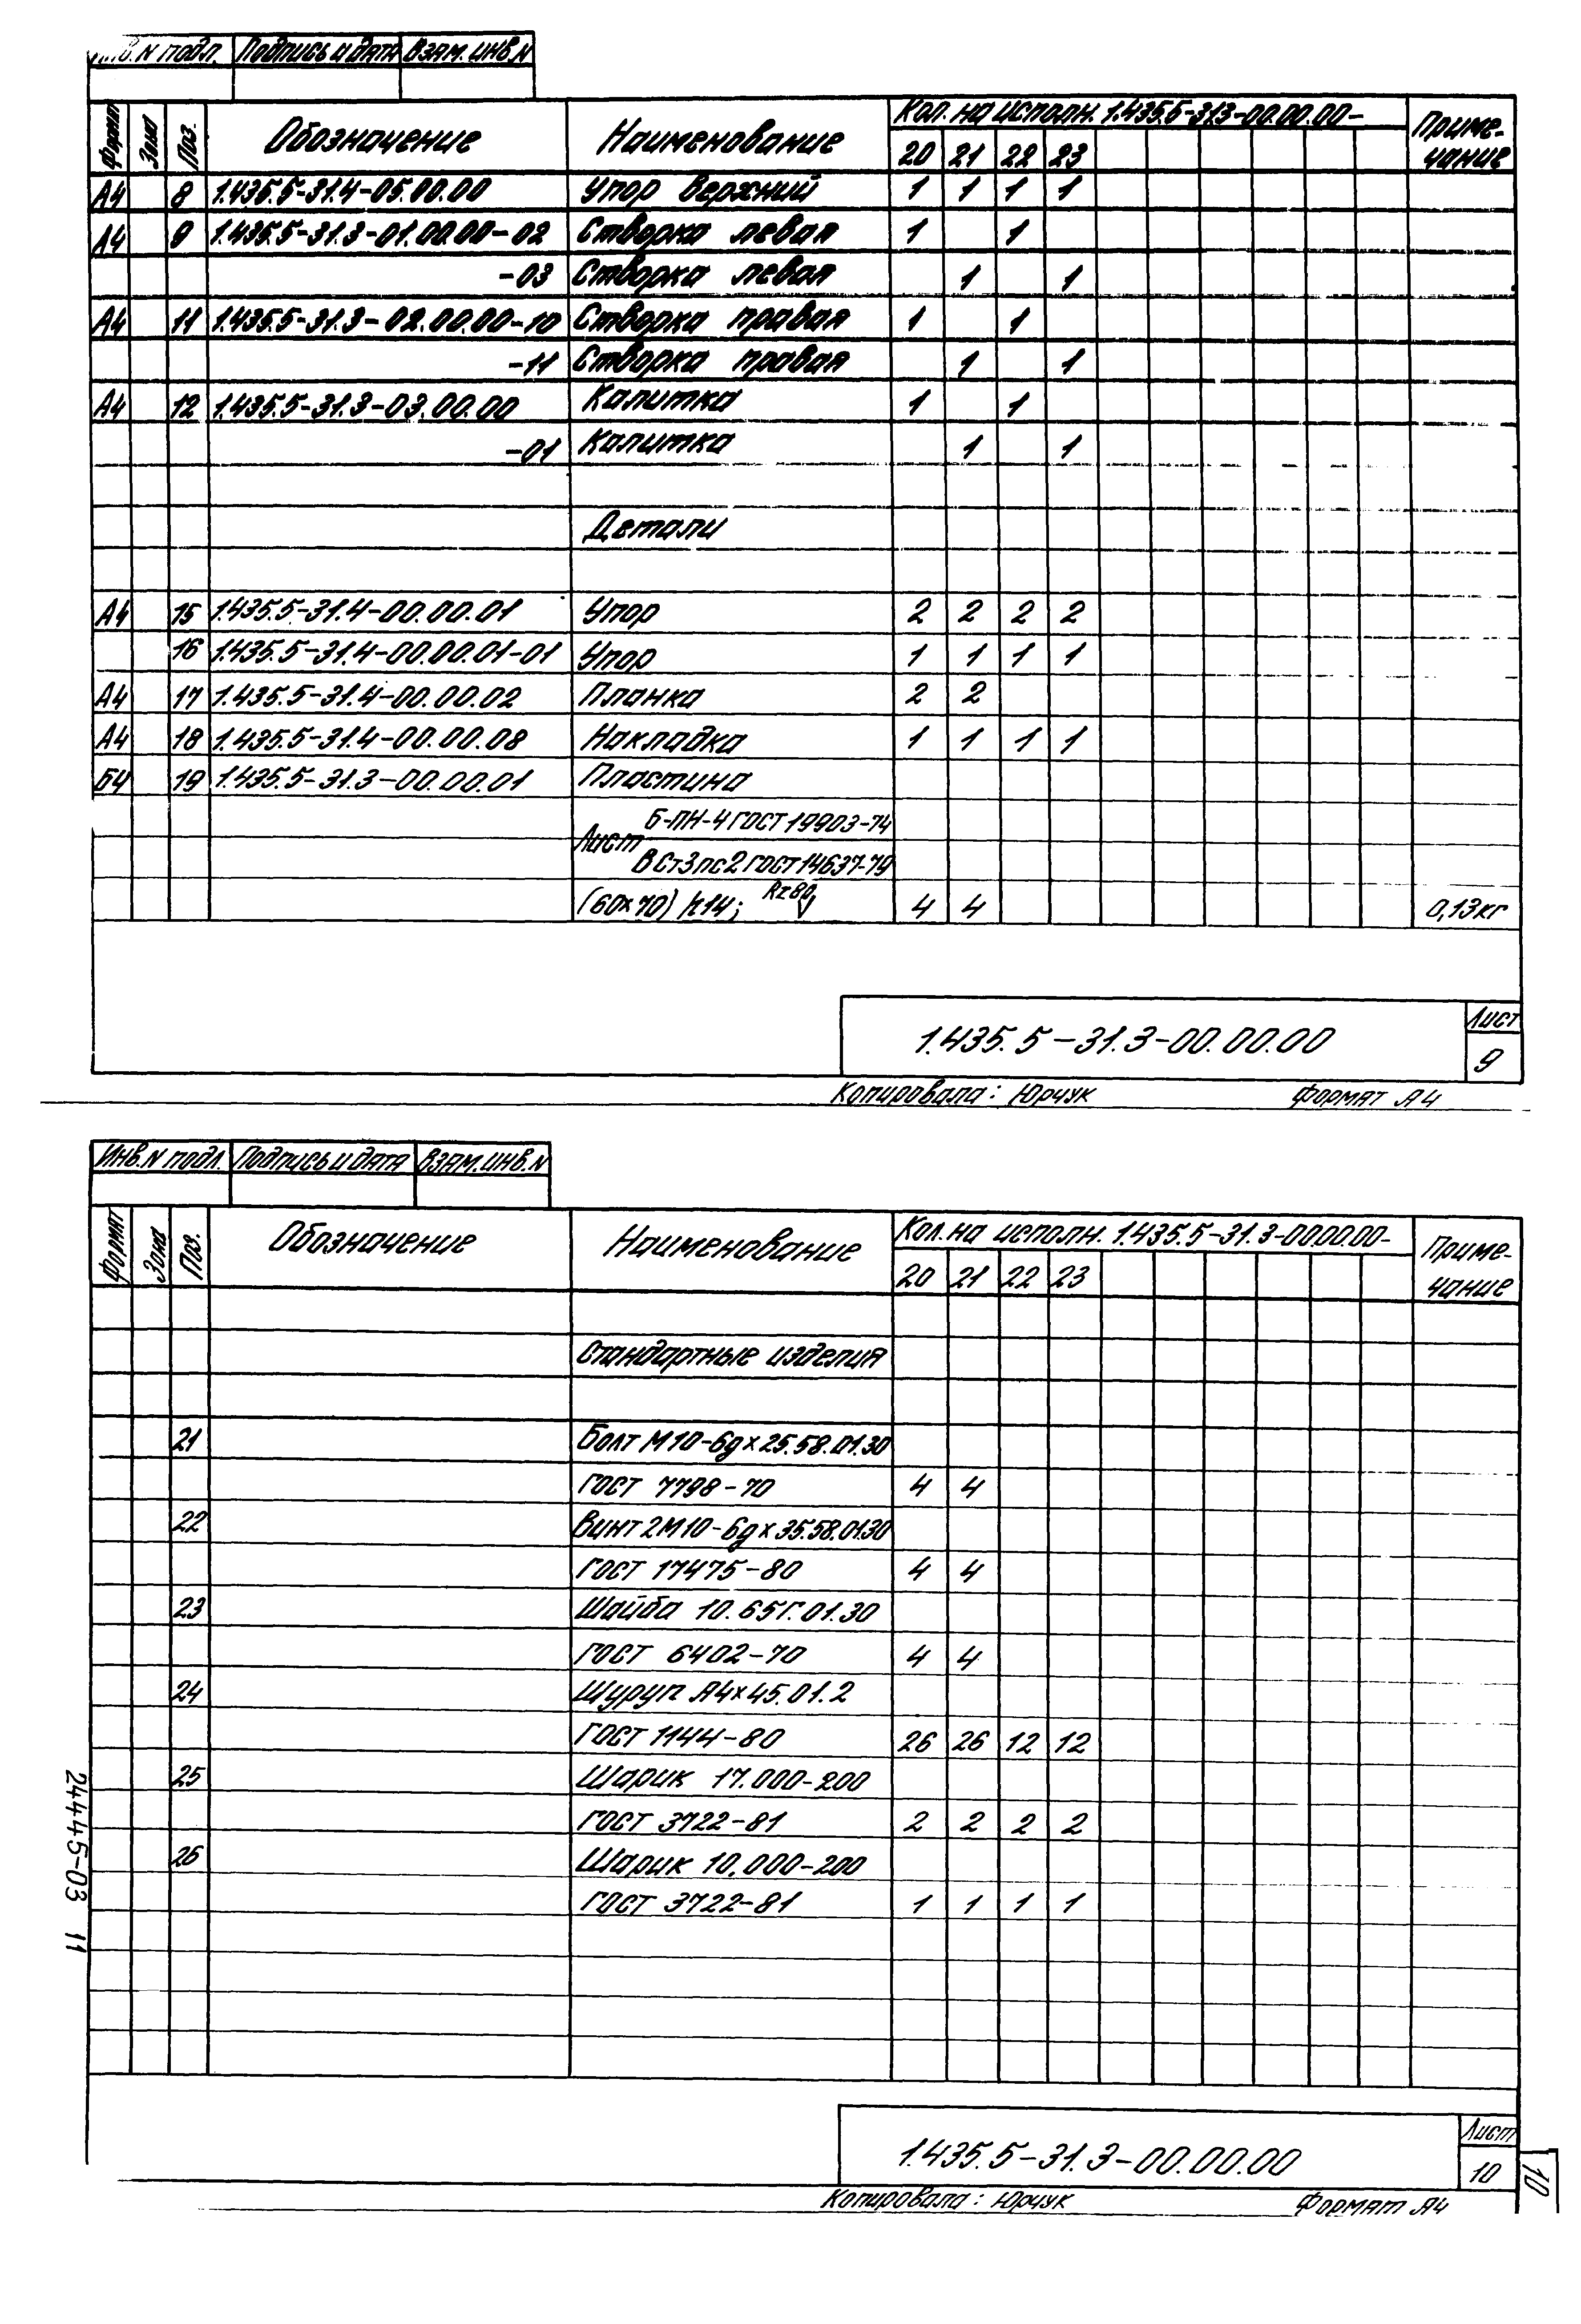 Инв.N подл. Подпись и дата Взам. инв.N
Формат Зона Поз. Обозначение Наименование Кол. на исполн. 1.435.5-31.3-00.00.00- Приме-
20 21 22 23 чание
А4 8 1.435.5-31.4-05.00.00 Упор верхний 1 1 1 1
А4 9 1.435.5-31.3-01.00.00-02 Створка левая 1 1
-03 Створка левая 1 1
А4 11 1.435.5-31.3-02.00.00-10 Створка правая 1 1
-11 Створка правая 1 1
А4 12 1.435.5-31.3-03.00.00 Калитка 1 1
-01 Калитка 1 1
Детали
А4 15 1.435.5-31.4-00.00.01 Упор 2 2 2 2
16 1.435.5-31.4-00.00.01-01 Упор 1 1 1 1
А4 17 1.435.5-31.4-00.00.02 Планка 2 2
А4 18 1.435.5-31.4-00.00.08 Накладка 1 1 1 1
Б4 19 1.435.5-31.3-00.00.01 Пластина
Б-ПН-4 ГОСТ 19903-74
Лист
ВСт3пс2 ГОСТ 14637-79
(60×70) h14; Rz80 4 4 0,13кг
1.435.5-31.3-00.00.00 Лист
9
Копировала: Юрчук Формат А4
Инв.N подл. Подпись и дата Взам. инв.N
Формат Зона Поз. Обозначение Наименование Кол. на исполн. 1.435.5-31.3-00.00.00- Приме-
20 21 22 23 чание
Стандартные изделия
21 Болт М10-6g×25.58.01.30
ГОСТ 7798-70 4 4
22 Винт 2М10-6g×35.58.01.30
ГОСТ 17475-80 4 4
23 Шайба 10.65Г.01.30
ГОСТ 6402-70 4 4
24 Шуруп А4×45.01.2
ГОСТ 1144-80 26 26 12 12
25 Шарик 17.000-200
ГОСТ 3722-81 2 2 2 2
26 Шарик 10,000-200
ГОСТ 3722-81 1 1 1 1
24445-03 11
1.435.5-31.3-00.00.00 Лист
10
10
Копировала: Юрчук Формат А4